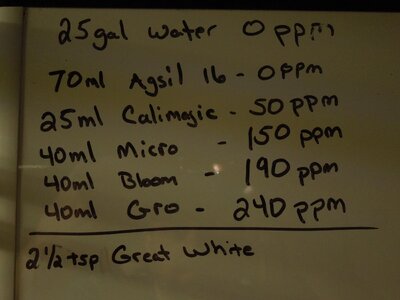 25gal water 0 ppm
70ml Agsil 16 - 0ppm
25ml Calimagic - 50 ppm
40ml Micro - 150 ppm
40ml Bloom - 190 ppm
40ml Gro - 240 ppm
2 1/2 tsp Great White